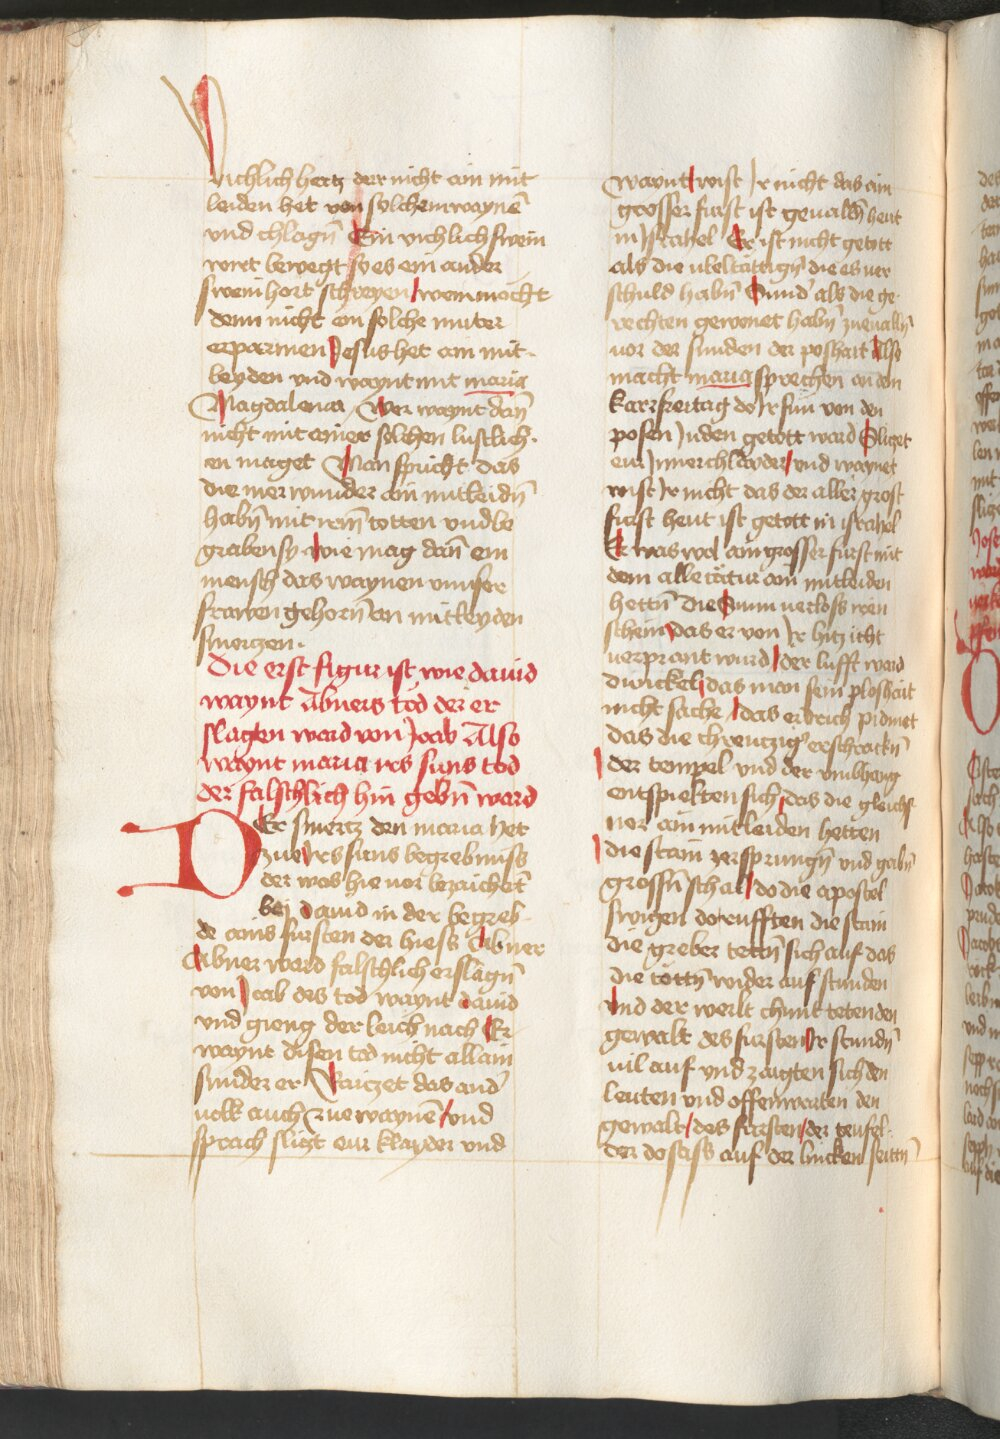 Vichlich hertz der nicht ain mit
leiden het von solchem waynē
vnd chlagn̄ Ein vichlich swein
wirt bewegt so es ein ander
swein hort schreyen wem mocht
denn nicht ein solche muter
erparmen Jesus het ain mit-
leyden vnd waynt mit maria
Magdalena Wer waynt dan̄
nicht mit ainer solchen lustlich-
en maget Man spricht das
die mer wunder ain mitleidn̄
habn̄ mit irm̄ totten vnd be
graben sy wie mag dan̄ ein
mensch das waynen vnnser
frawen gehorn̄ an mitleyden
smertzen.
Die erst figur ist wie dauid
waynt Abners tod der er
slagen ward von Joab Also
waynt maria irs suns tod
der falschlich hin gebn̄ ward
DEr smertz den maria het
zue irs suns begrebnuss
der was hie uor bezaichēt
bej dauid in der begreb-
de ains fursten der hiess Abner
Abner ward falschlich erslagn̄
von Joab des tod waynt dauid
vnd gieng der leich nach Er
waynt disen tod nicht allain
sunder er Raitzet das and'
uolk auch zue waynē vnd
sprach slitzt eur klayder vnd
waynt wist Jr nicht das ain
grosser furst ist geualln̄ heut
in Jsrahel Er ist nicht getott
als die ubeltättign̄ die es uer
schuld habn̄ Sund' als die ge-
rechten gewonet habn̄ zueualln̄
uor der sunden der poshait Also
macht maria sprechen an dem
karfreitag do Jr sun von den
posen Juden getott ward Slitzet
eur Jnnerchlayder vnd waynet
wist Jr nicht das der aller grost
furst heut ist getott in israhel
Er was wol ain grosser furst mit
dem alle creatur ain mitleiden
hettn̄ die Sunn uerloss iren
schein das er von Jr hitz icht
uerprant wurd der lufft ward
dunckel das man sein ploshait
nicht sache das erbrich pidmet
das die chreutzig' erschrackn̄
der tempel vnd der vmbhang
entspielten sich das die gleichs-
ner ain mitleiden hetten
die stain zersprungn̄ vnd gabn̄
grossn̄ schal do die apostel
swigen do rufften die stain
die greber tettn̄ sich auf das
die tottn̄ wider auf stunden
Vnd der werlt chunt teten den
gewalt des fursten Jr stundn̄
uil auf vnd zaigten sich den
leuten vnd offenwarten den
gewalt des fursten der teufel-
der do sass auf der lincken seittn̄